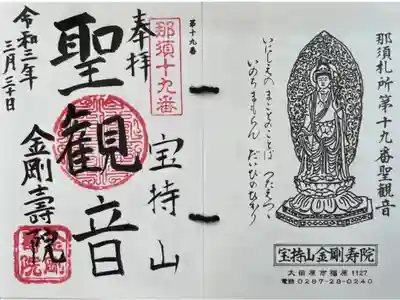 那須札所第十九番聖観音
いにしえの まことのことば つたえつゝ
いのちまもらん だいひのひかり
宝持山金剛寿院
大田原市福原1127
電話 0287-28-0240
第十九番
那須十九番
奉拝
宝持山
聖観音
金剛壽院
令和三年
三月三十日
金剛
壽院